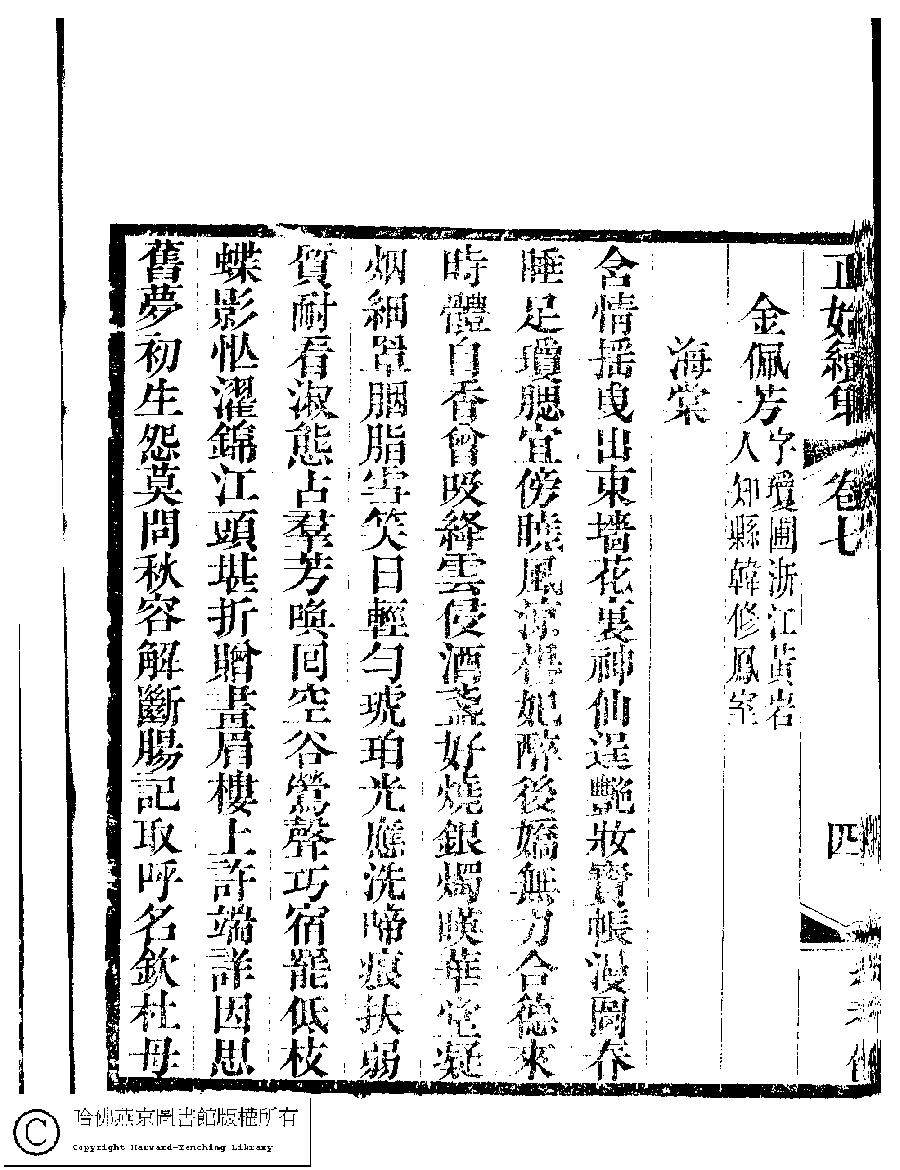 正始續集 卷七 四
金佩芳 字瓊圃浙江黃岩
人知縣韓修鳳室
海棠
含情搖曳出東墻花裏神仙逞艷妝寶帳漫圍春
睡足瓊腮宜傍曉風涼楊妃醉後嬌無力合德來
時體自香曾吸絳雲侵酒盞好燒銀燭暎華堂凝
烟細罩胭脂雪笑日輕勻琥珀光應洗啼痕扶弱
質耐看淑態占羣芳喚回空谷鶯聲巧宿罷低枝
蝶影忙濯錦江頭堪折贈畫眉樓上許端詳因思
舊夢初生怨莫問秋容解斷腸記取呼名欽杜母
哈佛燕京圖書館版權所有
Copyright Harvard-Yenching Library